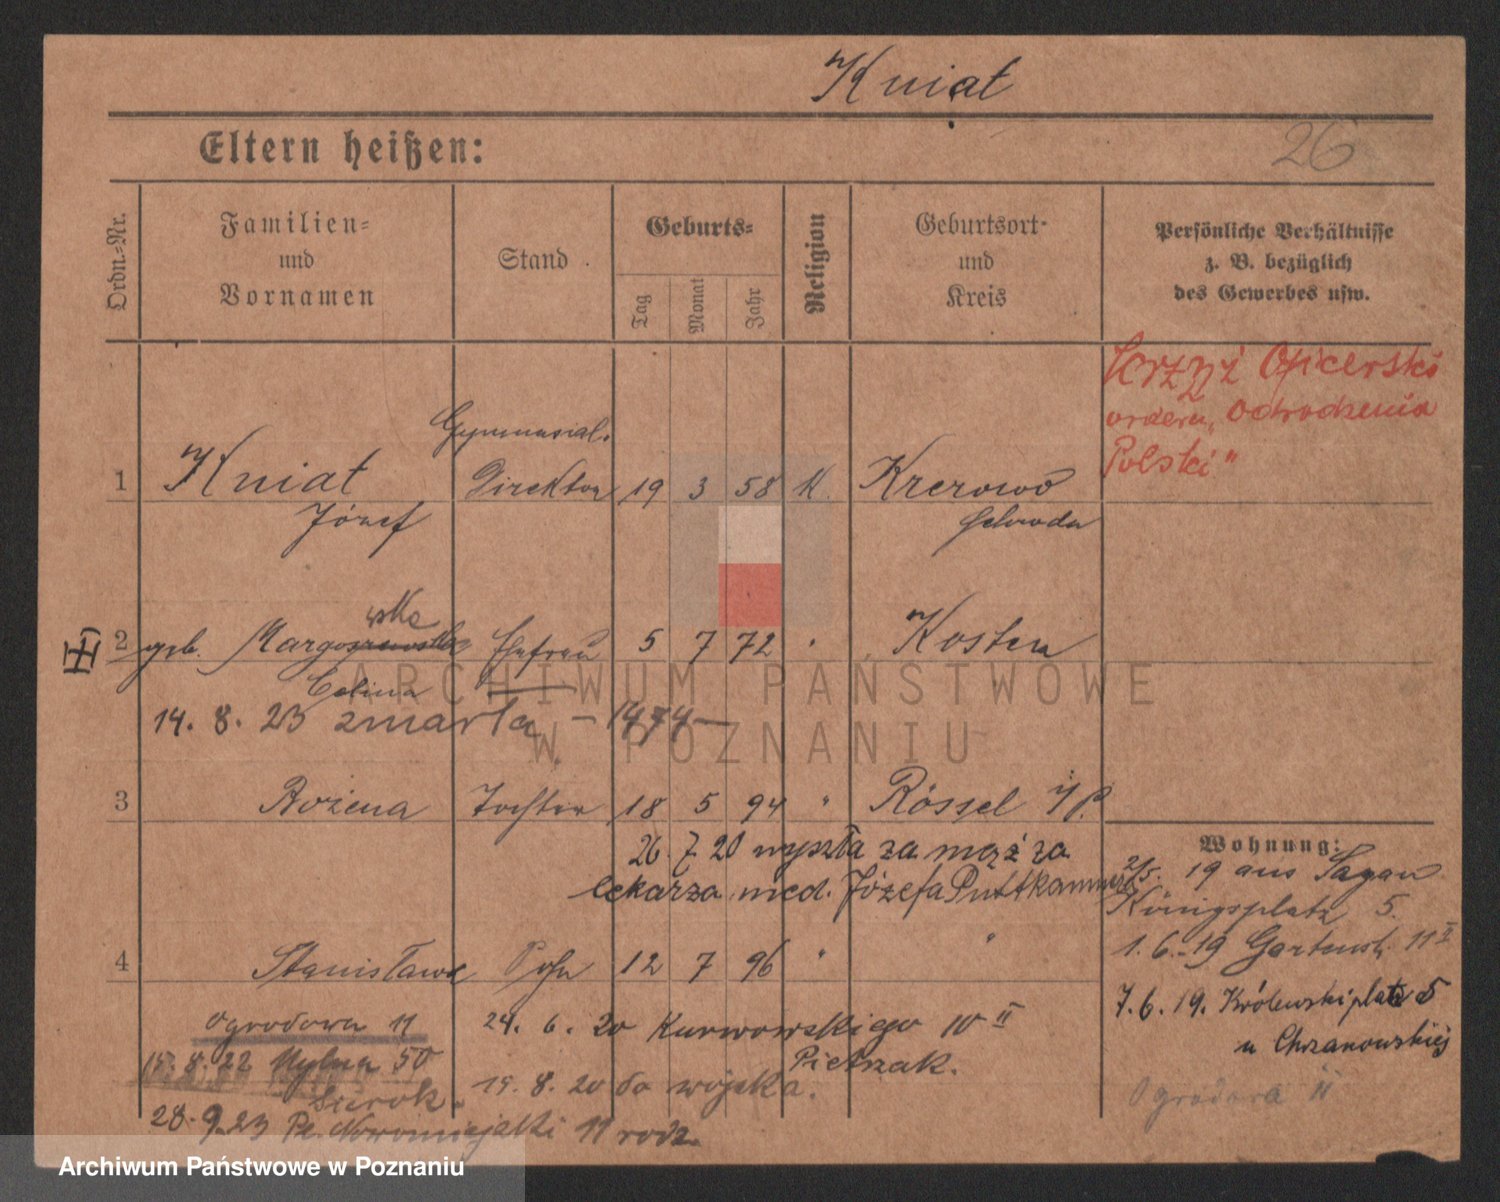 Kniat
26
Eltern heißen:
Ordn.-Nr.
Familien-
und
Vornamen
Stand
Geburts-
Tag
Monat
Jahr
Religion
Geburtsort-
und
Kreis
Persönliche Verhältnisse
z. B. bezüglich
des Gewerbes usw.
Krzyż Oficerski
orderu „Odrodzenia
Polski"
Gymnasial-
1 Kniat Direktor 19 3 58 K. Krerowo
Józef Schroda
wska
2 geb. Margoszewska Ehefrau 5 7 72 " Kosten
Celina
14. 8. 23 zmarła - 1474 -
3 Bożena Tochter 18 5 94 " Rössel
26. 7 20 wyszła za mąż za
lekarza med. Józefa Puttkammer
Wohnung:
2/5. 19 aus Sagan
Königsplatz 5.
1. 6. 19 Gartenstr. 11 II
7. 6. 19. Królewski platz 5
u Chrzanowskiej
Ogrodowa 11
4 Stanisław Sohn 12 7 96 " "
Ogrodowa 11
24. 6. 20 10 II
Pietrzak.
15. 8. 22 Młyńska 50
15. 8. 20 do wojska.
28. 9. 23 Pl. Nowomiejski 11 rodz.
ARCHIWUM PAŃSTWOWE
W POZNANIU
Archiwum Państwowe w Poznaniu